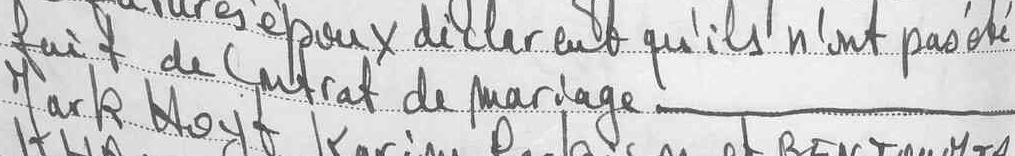 époux déclarent qu'ils n'ont pas été
fait de Contrat de mariage
Mark Hoyt Karim